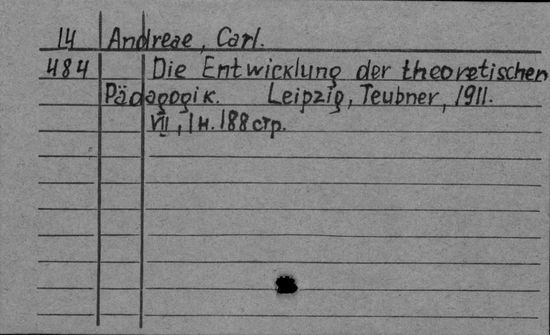 14 Andreae, Carl.
484 Die Entwicklung der theoretischen
Pädagogik. Leipzig, Teubner, 1911.
VII, 1 н. 188 стр.